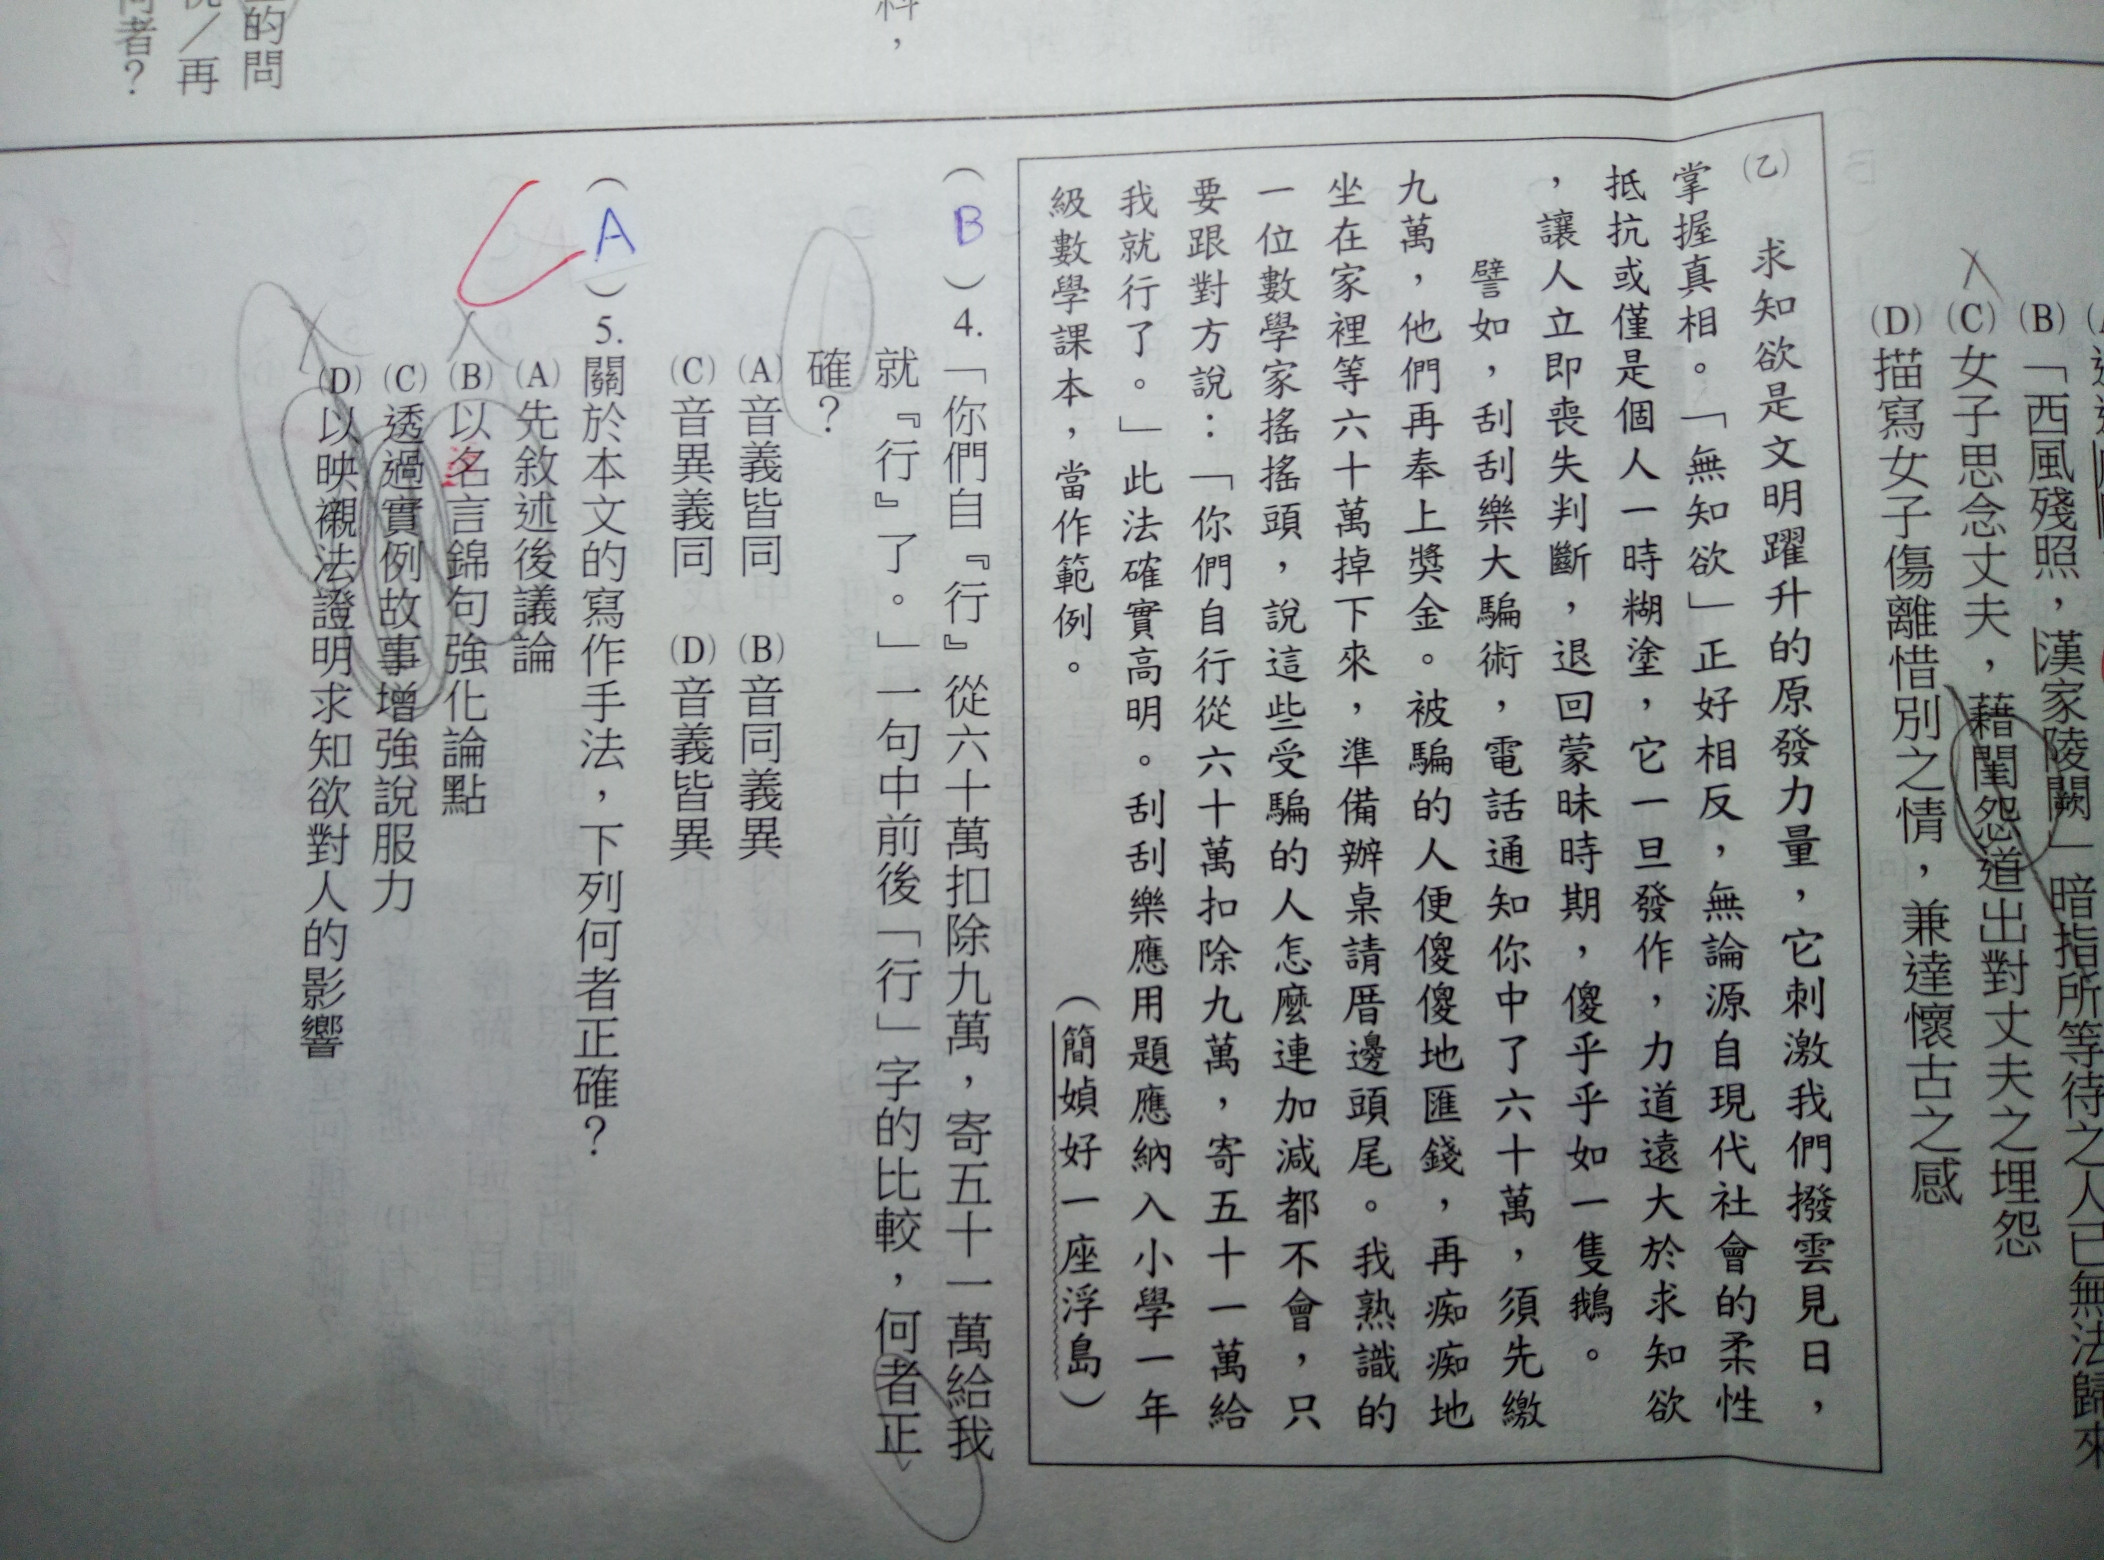 (B)「西風殘照，漢家陵闕」暗指所等待之人已無法歸來
(C)女子思念丈夫，藉閨怨道出對丈夫之埋怨
(D)描寫女子傷離惜別之情，兼達懷古之感
(乙)求知欲是文明躍升的原發力量，它刺激我們撥雲見日，
掌握真相。「無知欲」正好相反，無論源自現代社會的柔性
抵抗或僅是個人一時糊塗，它一旦發作，力道遠大於求知欲
，讓人立即喪失判斷，退回蒙昧時期，傻乎乎如一隻鵝。
譬如，刮刮樂大騙術，電話通知你中了六十萬，須先繳
九萬，他們再奉上獎金。被騙的人便傻傻地匯錢，再痴痴地
坐在家裡等六十萬掉下來，準備辦桌請厝邊頭尾。我熟識的
一位數學家搖搖頭，說這些受騙的人怎麼連加減都不會，只
要跟對方說：「你們自行從六十萬扣除九萬，寄五十一萬給
我就行了。」此法確實高明。刮刮樂應用題應納入小學一年
級數學課本，當作範例。
（簡媜好一座浮島）
（B）4.「你們自『行』從六十萬扣除九萬，寄五十一萬給我
就『行』了。」一句中前後「行」字的比較，何者正
確？
(A)音義皆同 (B)音同義異
(C)音異義同 (D)音義皆異
（A）5.關於本文的寫作手法，下列何者正確？
(A)先敘述後議論
(B)以名言錦句強化論點
(C)透過實例故事增強說服力
(D)以映襯法證明求知欲對人的影響
的問
／再
者？
料，